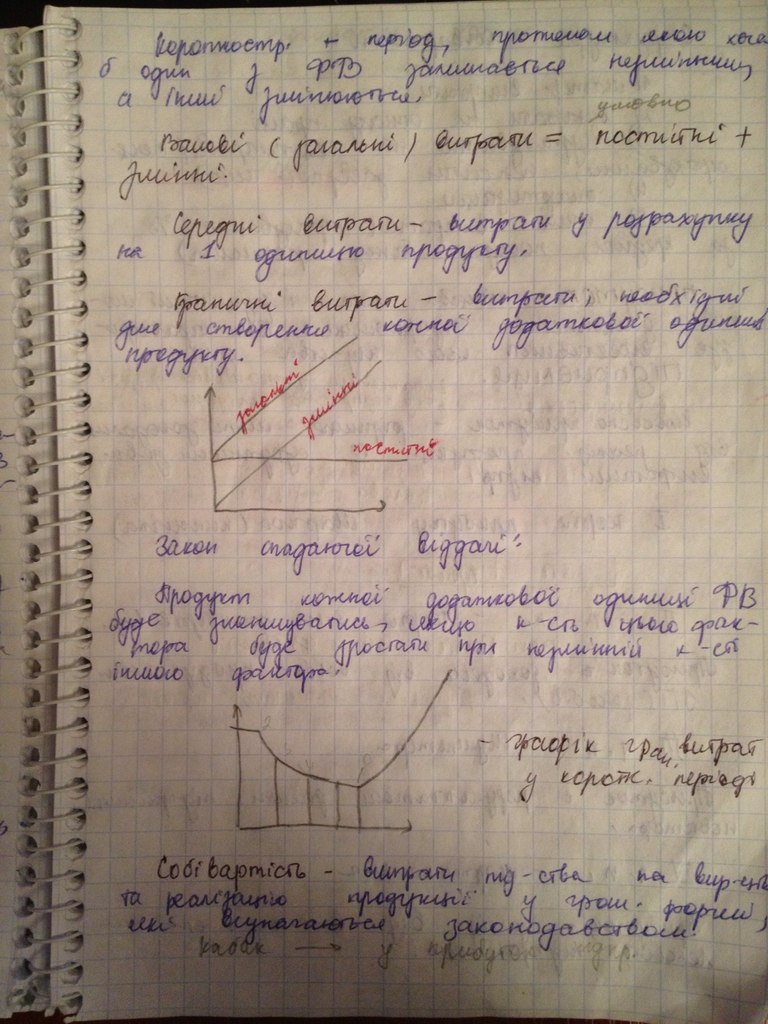 Короткостр. - період, протягом якого хоча
б один з ФВ залишається незмінним,
а інші змінюються.
умовно
Валові (загальні) витрати = постійні +
змінні.
Середні витрати - витрати у розрахунку
на 1 одиницю продукту.
Граничні витрати - витрати, необхідні
для створення кожної додаткової одиниці
продукту.
загальні
змінні
постійні
Закон спадаючої віддачі:
Продукт кожної додаткової одиниці ФВ
буде зменшуватись, якщо к-сть цього фак-
тора буде зростати при незмінній к-сті
іншого фактора.
- графік гран. витрат
у коротк. періоді
Собівартість - витрати під-ства на вир-цтво
та реалізацію продукції у грош. формі,
які визначаються законодавством.
у прибуток підпр.